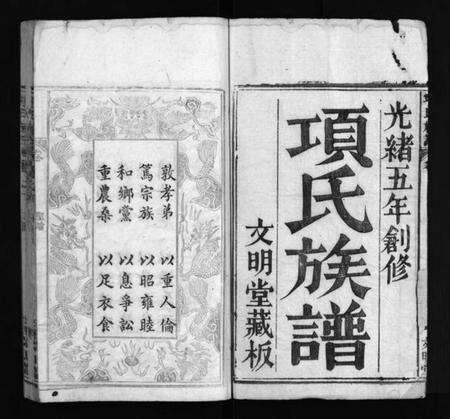 光緒五年創修
項氏族譜
文明堂藏板
敦孝弟 以重人倫
篤宗族 以昭雍睦
和鄉黨 以息爭訟
重農桑 以足衣食